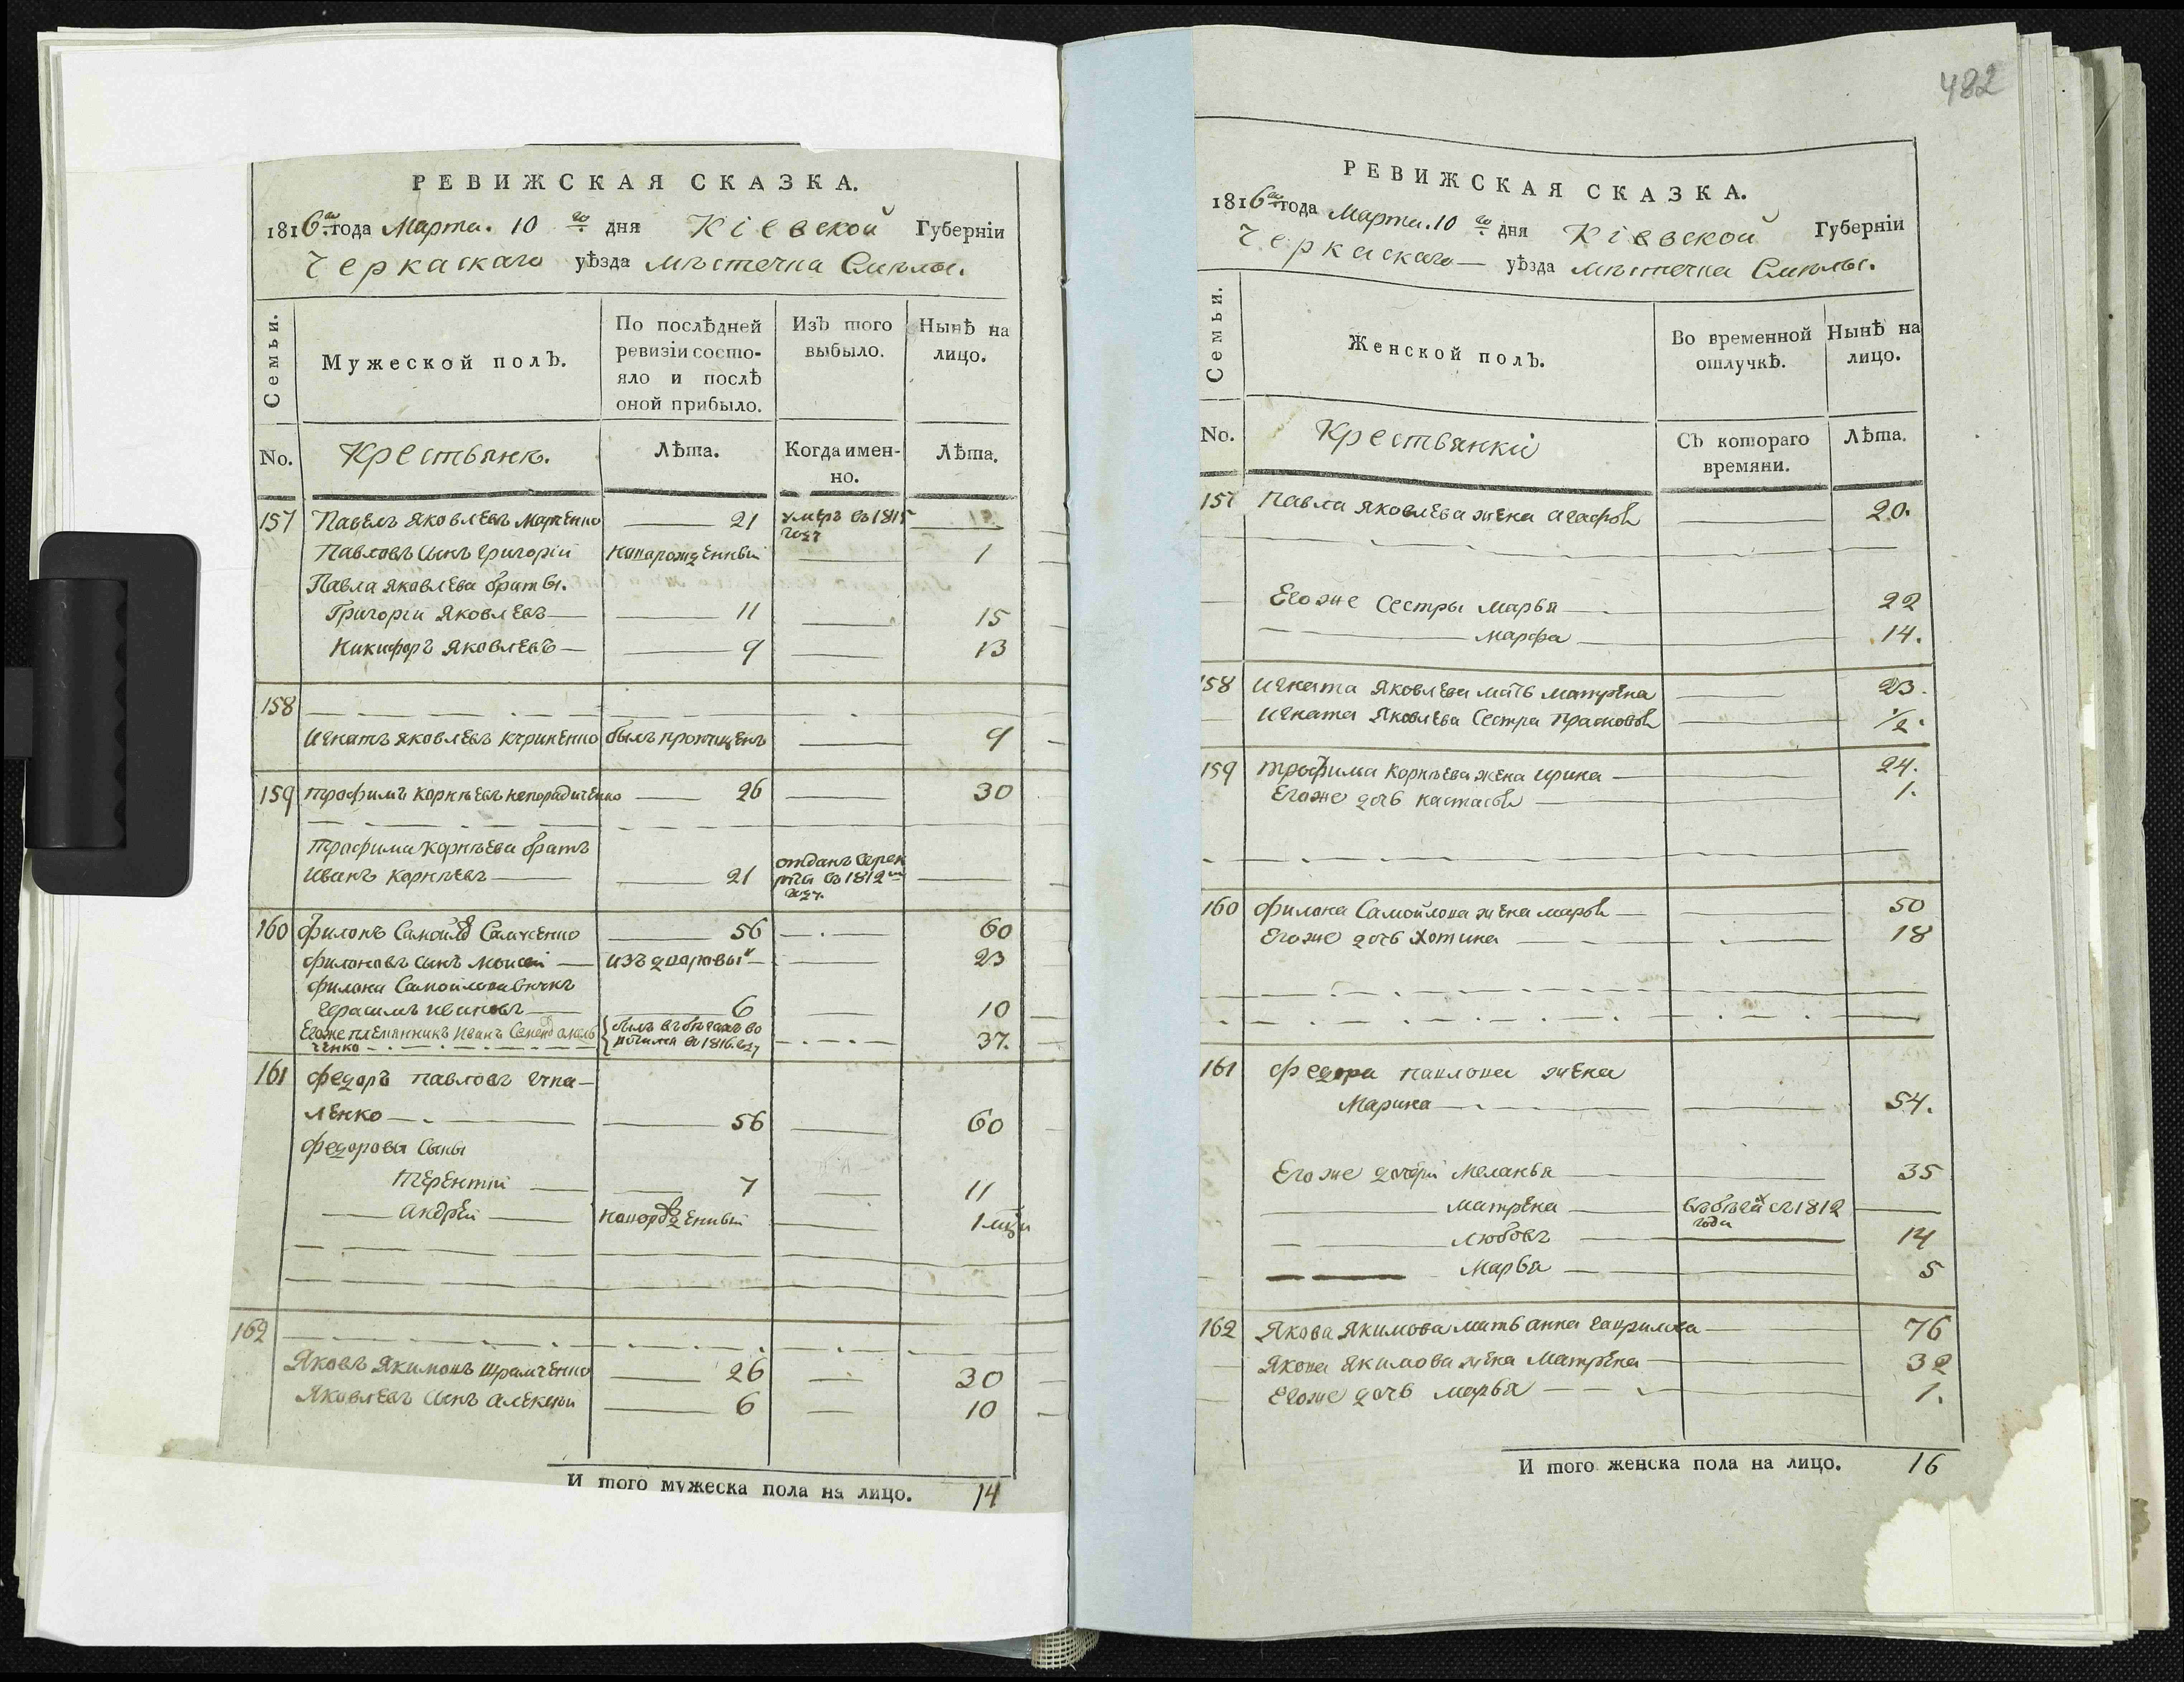 РЕВИЖСКАЯ СКАЗКА.
1816го года Марта. 10го дня Кіевской Губерніи
Черкаскаго уѣзда мѣстечка Смѣлы.
Семьи.
Мужеской полъ.
По послѣдней ревизіи состо-
яло и послѣ
оной прибыло.
Изъ того
выбыло.
Нынѣ на
лицо.
No.
Крестьянъ.
Лѣта.
Когда имен-
но.
Лѣта.
157 Павелъ Яковлевъ 21 умеръ въ 1815
году
Павловъ сынъ Григорій новорожденный 1
Павла Яковлева братья.
Григорій Яковлевъ 11 15
Никифоръ Яковлевъ 9 13
158
Игнатъ Яковлевъ былъ пропущенъ 9
159 Трофимъ Корнѣевъ 26 30
Трофима Корнѣева братъ
Иванъ Корнѣевъ 21 отданъ въ рек
руты въ 1812м
году.
160 Филонъ Самойлов 56 60
Филоновъ сынъ Моисей 23
Филона Самойлова внукъ
Герасимъ Ивановъ 6 10
Егоже племянникъ Иванъ былъ въ бегахъ во
ченко въ 1816 году 37.
161 Федоръ Павловъ Гна-
ленко 56 60
Федоровы сыны
Терентій 7 11
Андрей 1
162
Яковъ Якимовъ Шрамченко 26 30
Яковлевъ сынъ Алексѣй 6 10
И того мужеска пола на лицо. 14
482
РЕВИЖСКАЯ СКАЗКА.
1816го года Марта. 10го дня Кіевской Губерніи
Черкаскаго уѣзда мѣстечка Смѣлы.
Семьи.
Женской полъ.
Во временной
отлучкѣ.
Нынѣ на
лицо.
No.
Крестьянки
Съ котораго
времяни.
Лѣта.
157 Павла Яковлева жена Агафья 20.
Егоже сестры Марья 22
Марфа 14.
158 Игната Яковлева мать Матрена 23.
Игната Яковлева сестра Прасковья 1/2.
159 Трофима Корнѣева жена Ирина 24.
Егоже дочь Настасья 1.
160 Филона Самойлова жена Марья 50
Егоже дочь Хотина 18
161 Федора Павлова жена
Марина 54.
Егоже дочери Меланья 35
Матрена въ бегах съ 1812
года
Любовь 14
Марья 5
162 Якова Якимова мать Анна Гаврилова 76
Якова Якимова жена Матрена 32
Егоже дочь Марья 1.
И того женска пола на лицо. 16